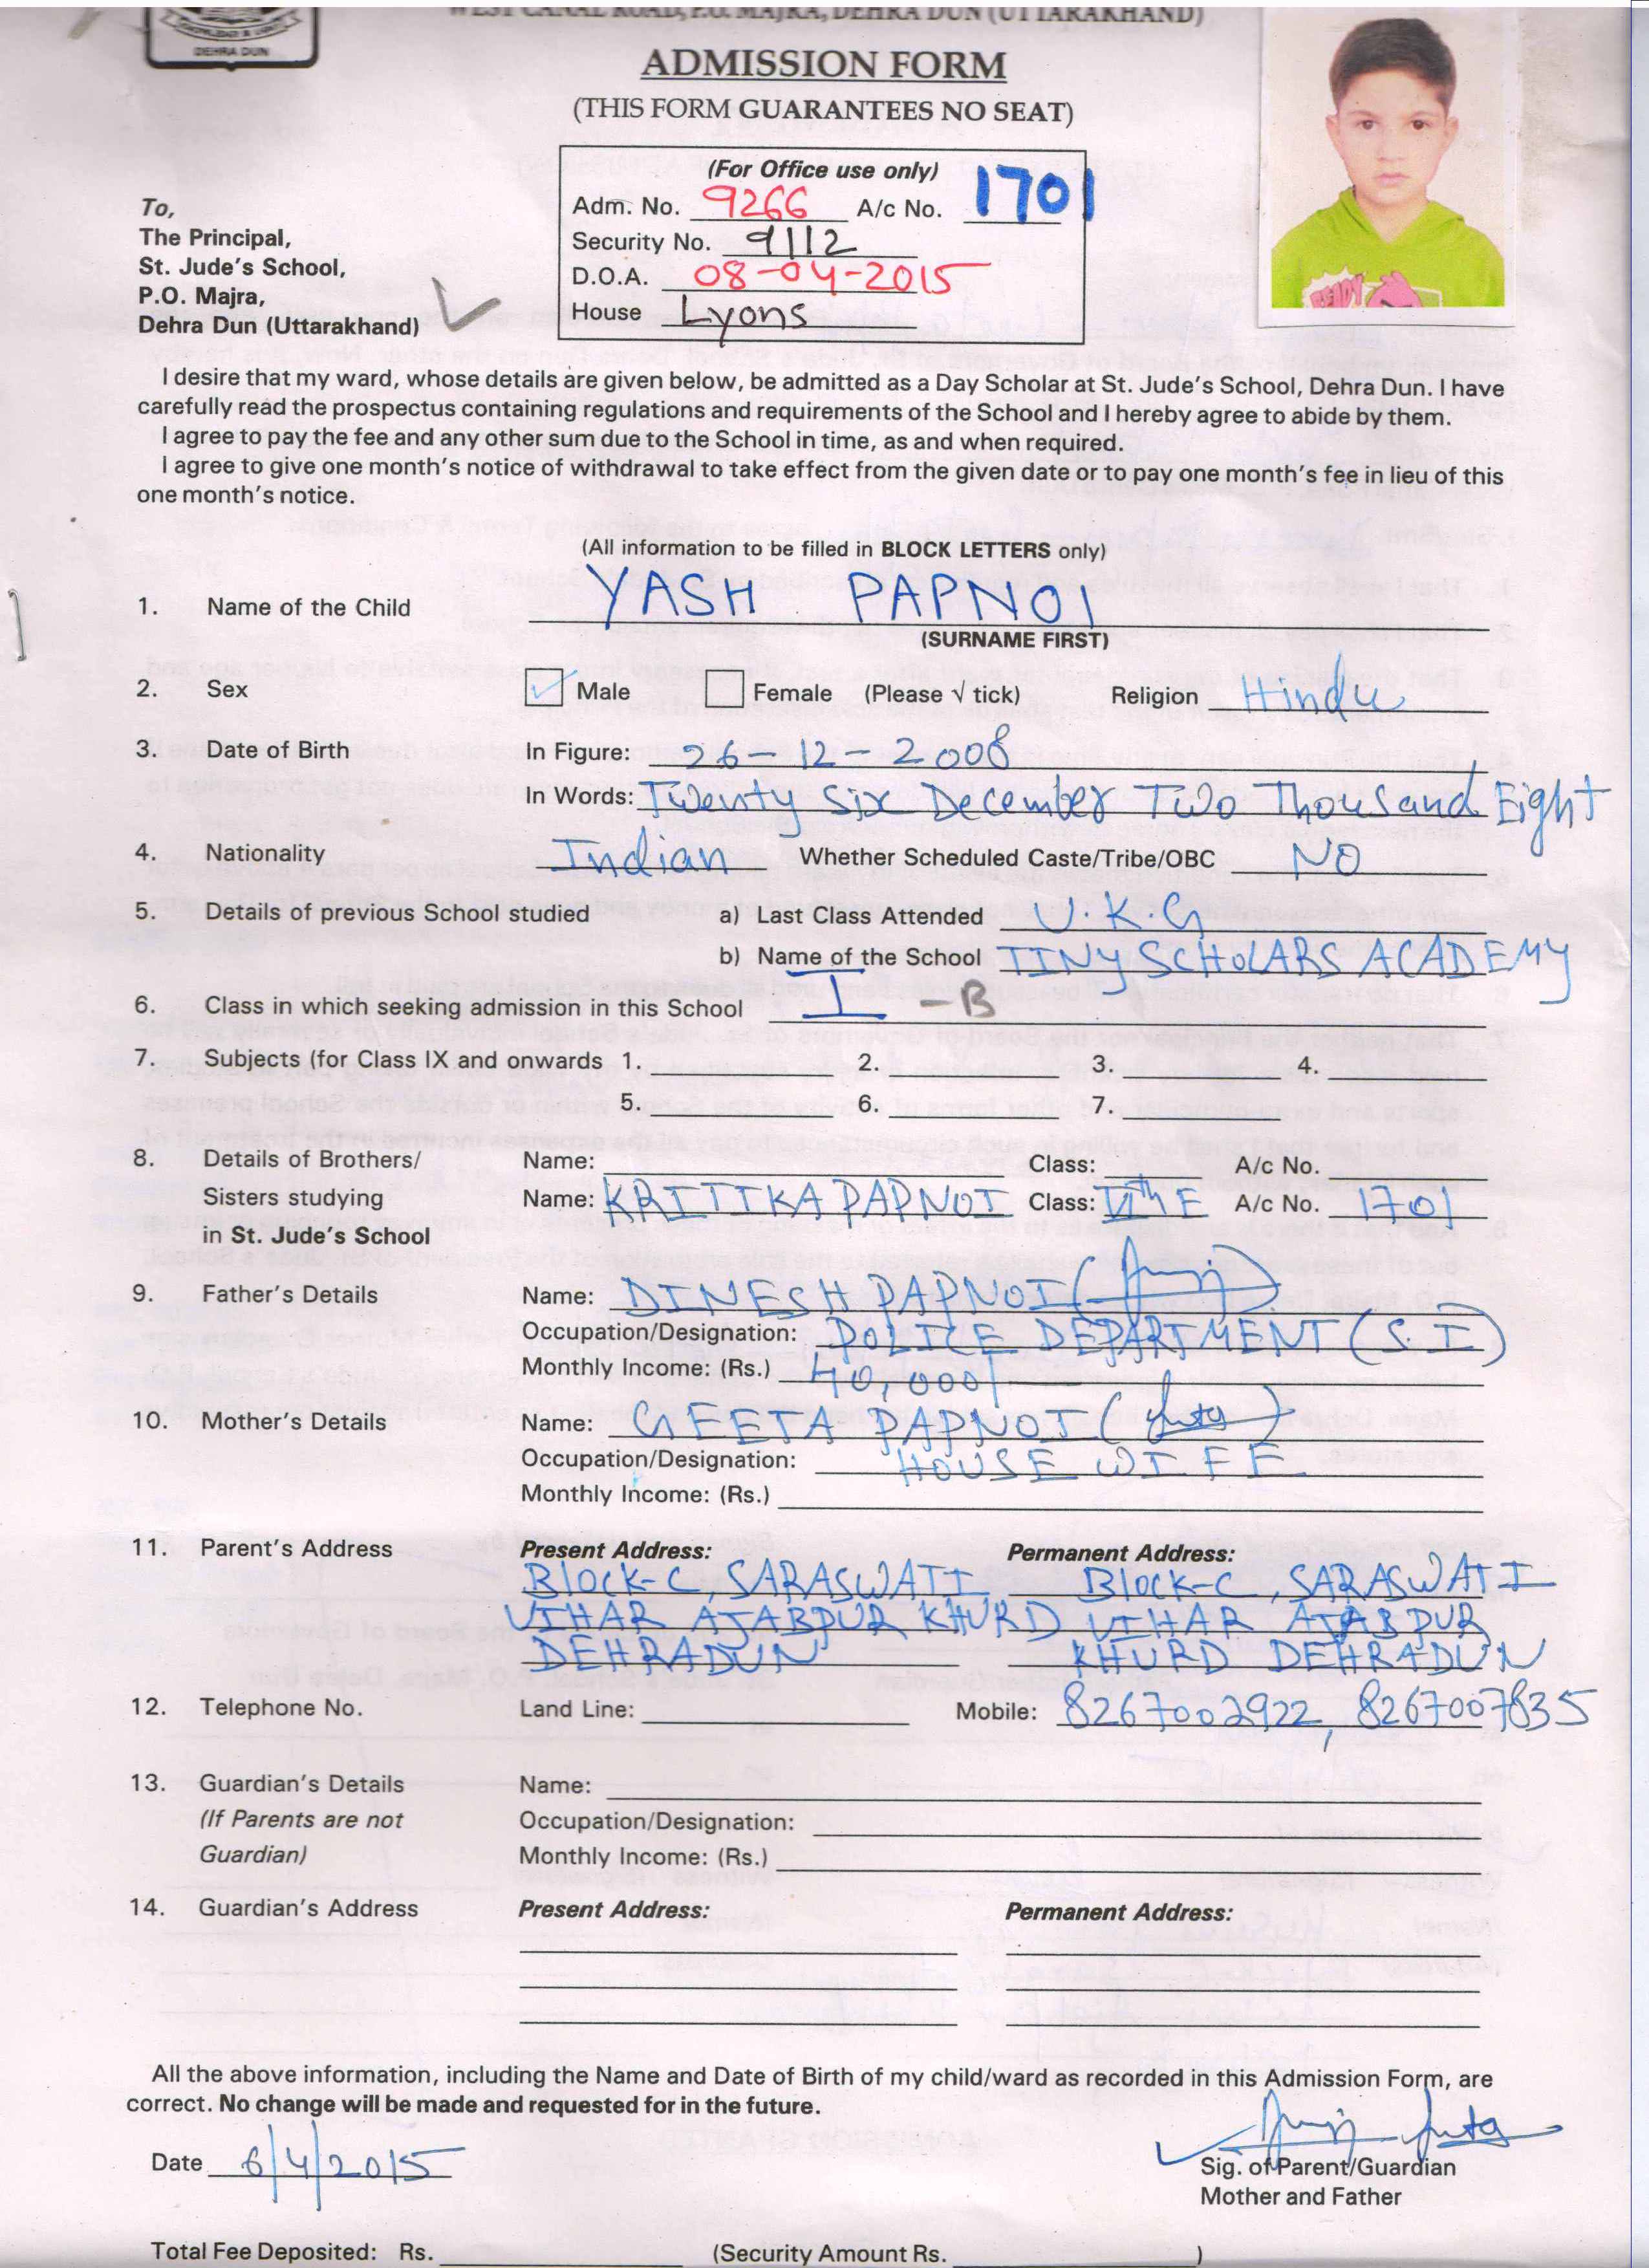 WEST CANAL ROAD, P.O. MAJRA, DEHRA DUN (UTTARAKHAND)
DEHRA DUN
ADMISSION FORM
(THIS FORM GUARANTEES NO SEAT)
(For Office use only)
Adm. No. 9266 A/c No. 1701
Security No. 9112
D.O.A. 08-04-2015
House Lyons
To,
The Principal,
St. Jude's School,
P.O. Majra,
Dehra Dun (Uttarakhand)
READY
I desire that my ward, whose details are given below, be admitted as a Day Scholar at St. Jude's School, Dehra Dun. I have
carefully read the prospectus containing regulations and requirements of the School and I hereby agree to abide by them.
I agree to pay the fee and any other sum due to the School in time, as and when required.
I agree to give one month's notice of withdrawal to take effect from the given date or to pay one month's fee in lieu of this
one month's notice.
(All information to be filled in BLOCK LETTERS only)
1. Name of the Child YASH PAPNOI
(SURNAME FIRST)
2. Sex Male Female (Please √ tick) Religion Hindu
3. Date of Birth In Figure: 26-12-2008
In Words: Twenty Six December Two Thousand Eight
4. Nationality Indian Whether Scheduled Caste/Tribe/OBC NO
5. Details of previous School studied a) Last Class Attended U.K.G
b) Name of the School TINY SCHOLARS ACADEMY
6. Class in which seeking admission in this School I -B
7. Subjects (for Class IX and onwards 1. 2. 3. 4.
5. 6. 7.
8. Details of Brothers/ Name: Class: A/c No.
Sisters studying Name: KRITIKA PAPNOI Class: A/c No. 1701
in St. Jude's School
9. Father's Details Name: DINESH PAPNOI
Occupation/Designation: POLICE DEPARTMENT (S.I)
Monthly Income: (Rs.) 40,000/-
10. Mother's Details Name: GEETA PAPNOI
Occupation/Designation: HOUSE WIFE
Monthly Income: (Rs.)
11. Parent's Address Present Address: Permanent Address:
BlOCK-C, SARASWATI BlOCK-C, SARASWATI
VIHAR AJABPUR KHURD VIHAR AJABPUR
DEHRADUN KHURD DEHRADUN
12. Telephone No. Land Line: Mobile: 8267002922, 8267007835
13. Guardian's Details Name:
(If Parents are not Occupation/Designation:
Guardian) Monthly Income: (Rs.)
14. Guardian's Address Present Address: Permanent Address:
All the above information, including the Name and Date of Birth of my child/ward as recorded in this Admission Form, are
correct. No change will be made and requested for in the future.
Date 6/4/2015
Sig. of Parent/Guardian
Mother and Father
Total Fee Deposited: Rs. (Security Amount Rs. )